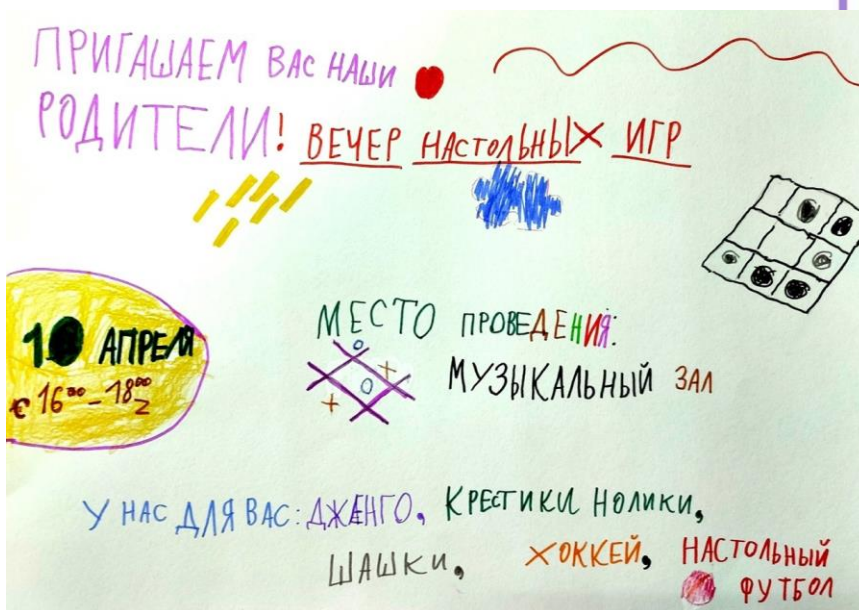 ПРИГАШАЕМ ВАС НАШИ
РОДИТЕЛИ! ВЕЧЕР НАСТОЛЬНЫХ ИГР
10 АПРЕЛЯ
С 16⁰⁰-18⁰⁰
МЕСТО ПРОВЕДЕНИЯ:
МУЗЫКАЛЬНЫЙ ЗАЛ
У НАС ДЛЯ ВАС: ДЖЕНГО, КРЕСТИКИ НОЛИКИ,
ШАШКИ, ХОККЕЙ, НАСТОЛЬНЫЙ
ФУТБОЛ